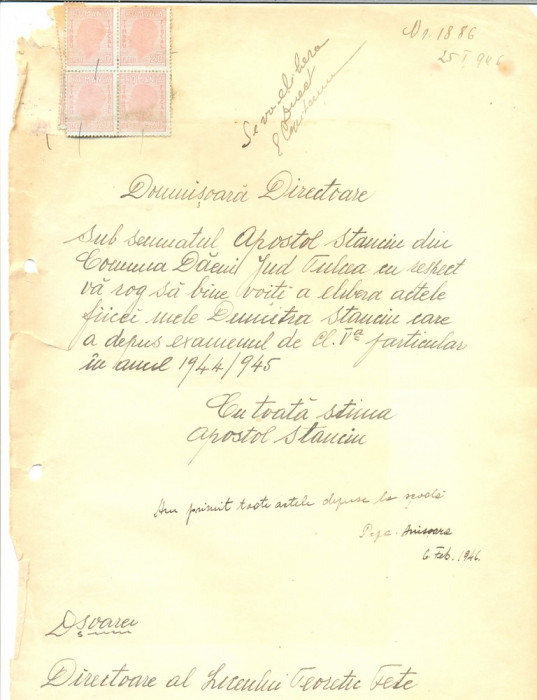 Nr. 1886
25 I 946
Se va elibera
Domnișoară Directoare
Sub semnatul Apostol Stanciu din
Comuna Dăeni Jud Tulcea cu respect
vă rog să bine voiti a elibera actele
fiicei mele Dumitra Stanciu care
a depus examenul de cl. Vª particular
în anul 1944/945
Cu toată stima
Apostol Stanciu
Am primit toate actele depuse la școală
Popa Anisoara
6 Feb. 1946.
Dșoarei
Directoare al Liceului Teoretic Fete